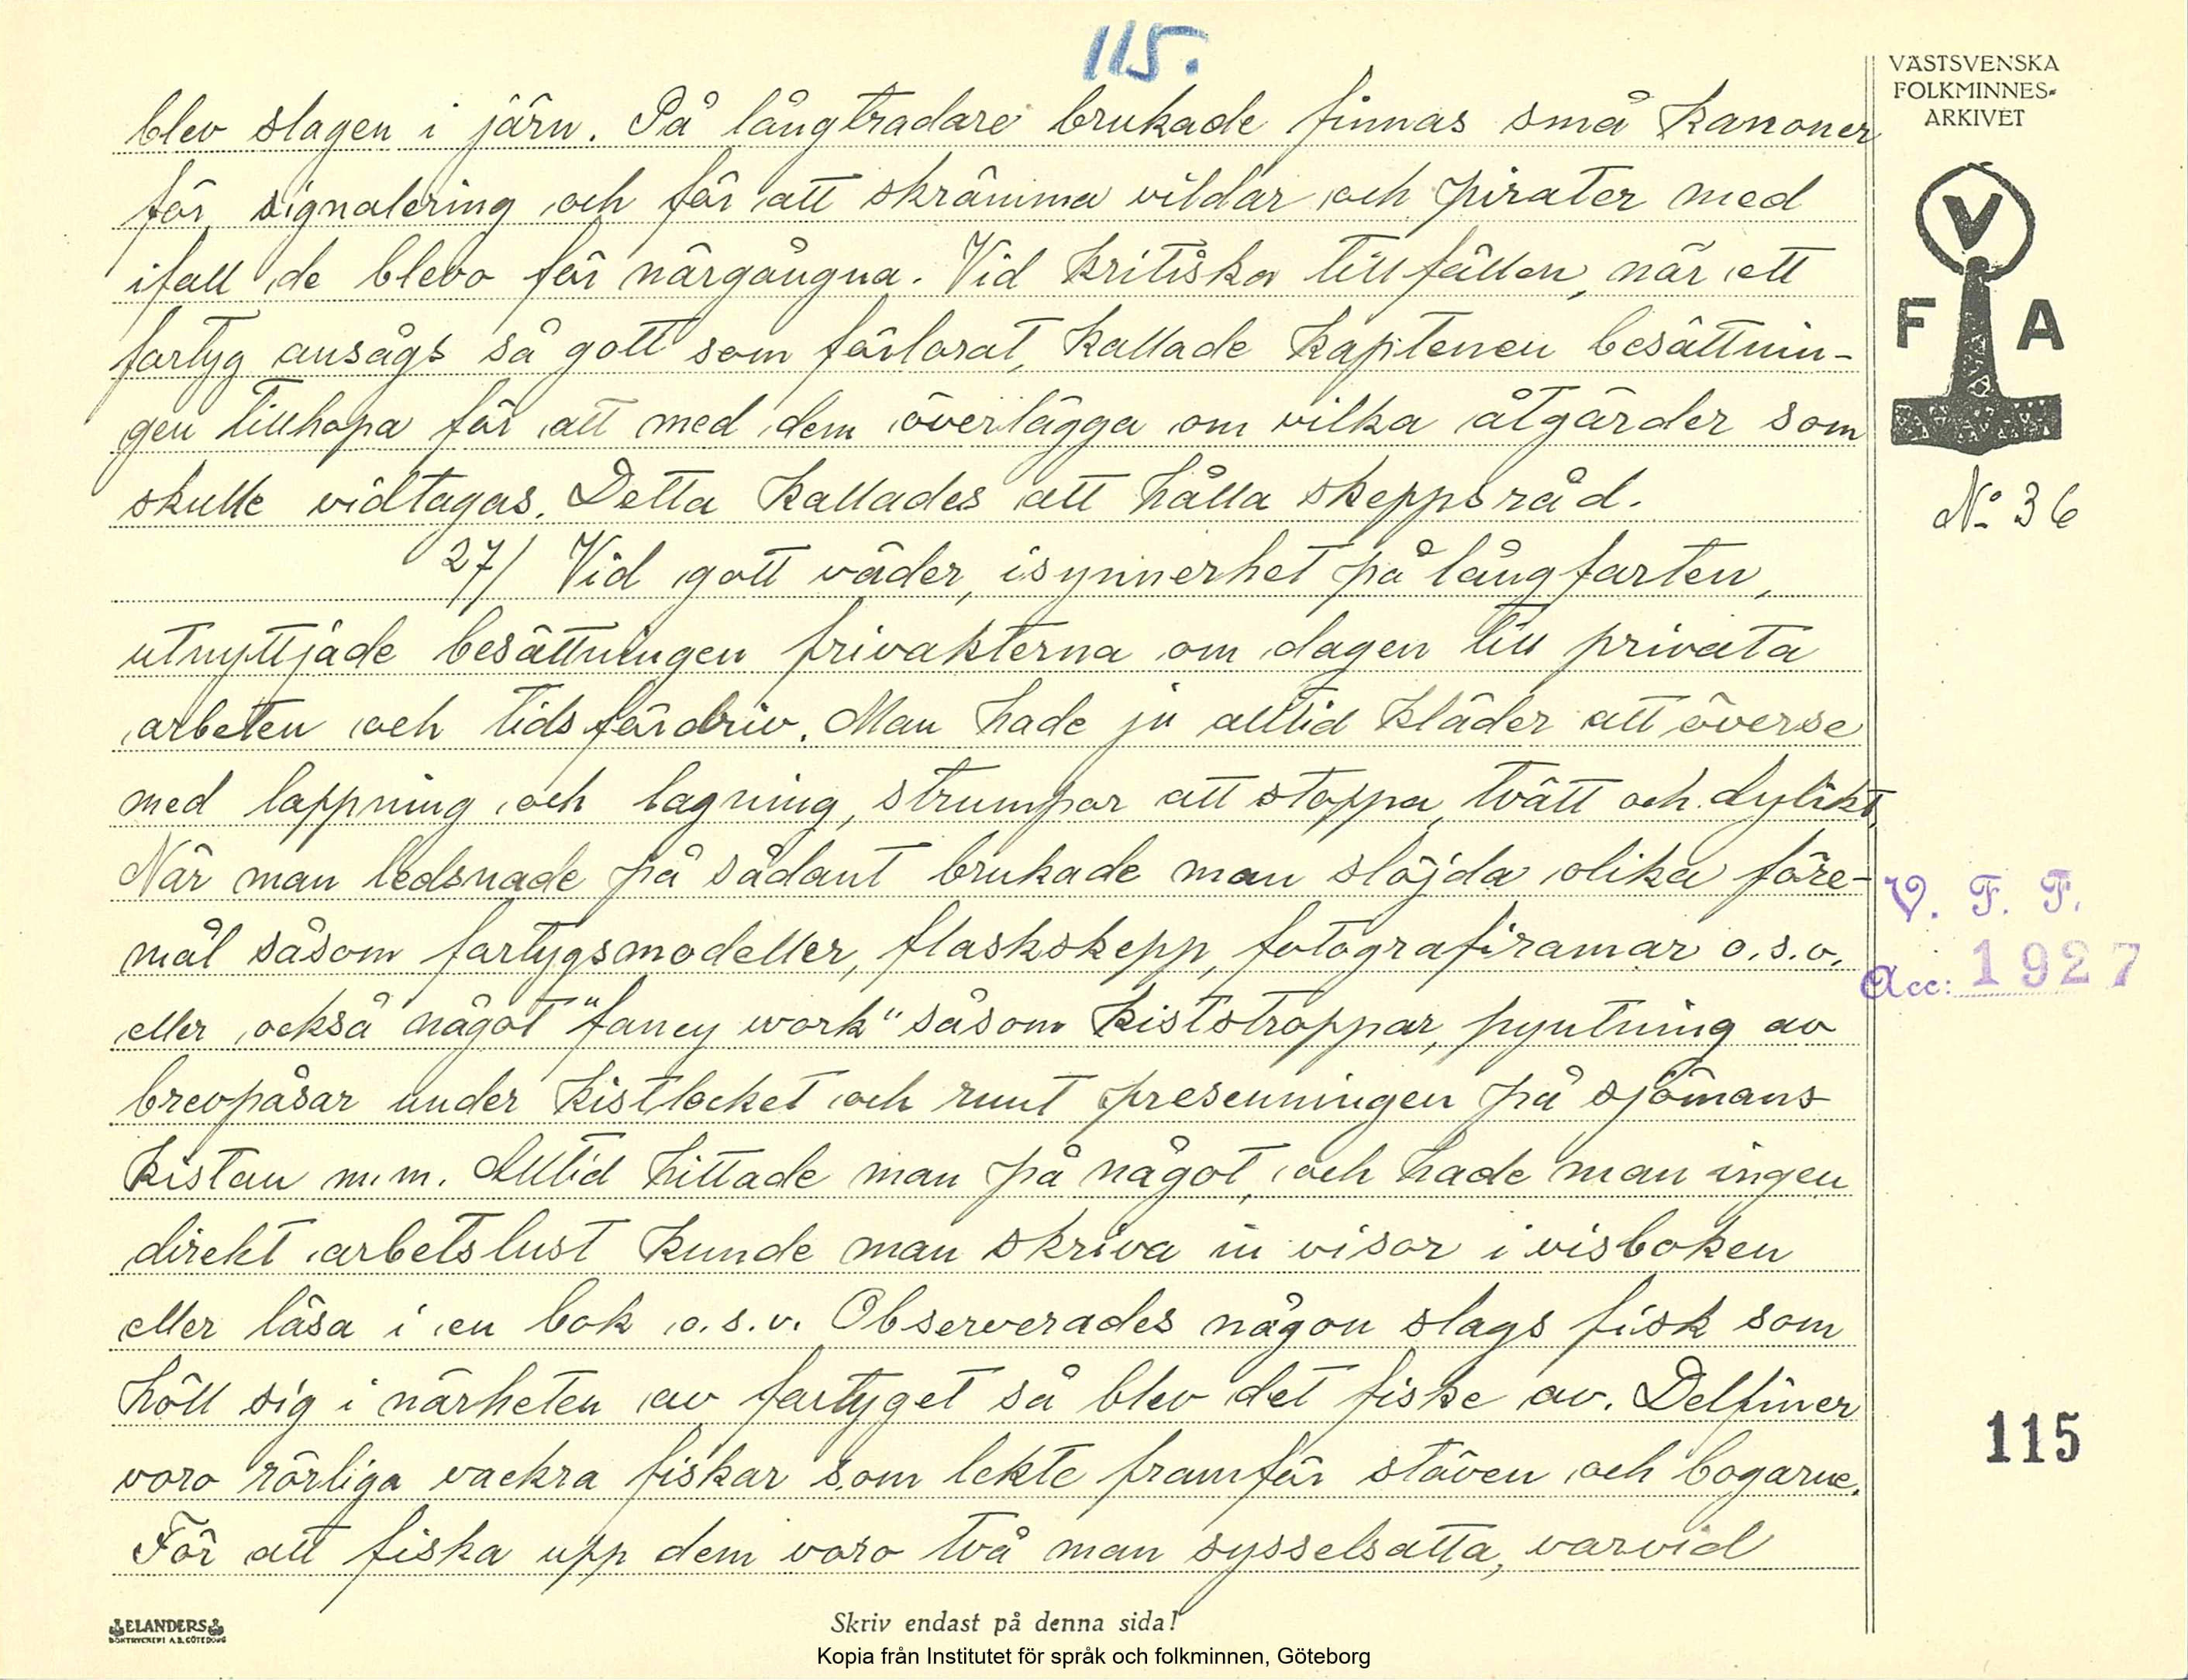 115.
VÄSTSVENSKA
FOLKMINNES-
ARKIVET
V
F A
No 36
blev slagen i järn. På långtradare brukade finnas små kanoner
för signalering och för att skrämma vildar och pirater med
ifall de blevo för närgångna. Vid kritiska tillfällen, när ett
fartyg ansågs så gott som förlorat, kallade kaptenen besättnin-
gen tillhopa för att med dem överlägga om vilka åtgärder som
skulle vidtagas. Detta kallades att hålla skeppsråd.
27/ Vid gott väder, isynnerhet på långfarten,
utnyttjade besättningen frivakterna om dagen till privata
arbeten och tidsfördriv. Man hade ju alltid kläder att överse
med lappning och lagning, strumpor att stoppa, tvätt och dylikt.
När man ledsnade på sådant brukade man slöjda olika före-
mål såsom fartygsmodeller, flaskskepp, fotografiramar o.s.v.
eller också något "fancy work" såsom kiststroppar, pyntning av
brevpåsar under kistlocket och runt presenningen på sjömans
kistan m.m. Alltid hittade man på något, och hade man ingen
direkt arbetslust kunde man skriva in visor i visboken
eller läsa i en bok o.s.v. Observerades någon slags fisk som
höll sig i närheten av fartyget så blev det fiske av. Delfiner
voro rörliga vackra fiskar som lekte framför stäven och bogarne.
För att fiska upp dem voro två man sysselsatta, varvid
V. F. F.
Acc: 1927
115
ELANDERS
BOKTRYCKERI A.B. GÖTEBORG
Skriv endast på denna sida!
Kopia från Institutet för språk och folkminnen, Göteborg